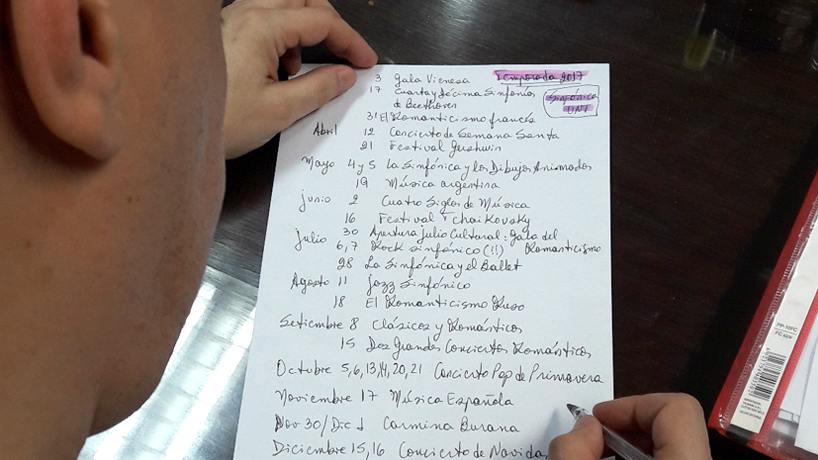 Temporada 2017
Sinfónica
UNT
3 Gala Vienesa
17 Cuarta y Décima Sinfonías
de Beethoven
31 El Romanticismo francés
Abril 12 Concierto de Semana Santa
21 Festival Gershwin
Mayo 4 y 5 La Sinfónica y los Dibujos Animados
19 Música argentina
junio 2 Cuatro Siglos de Música
16 Festival Tchaikovsky
30 Apertura Julio Cultural: Gala del
Romanticismo
Julio 6,7 Rock sinfónico (!!)
28 La Sinfónica y el Ballet
Agosto 11 jazz Sinfónico
18 El Romanticismo Ruso
Setiembre 8 Clásicos y Románticos
15 Dos Grandes Conciertos Románticos
Octubre 5,6,13,14,20,21 Concierto Pop de Primavera
Noviembre 17 Música Española
Nov 30/Dic 1 Carmina Burana
Diciembre 15,16 Concierto de Navida